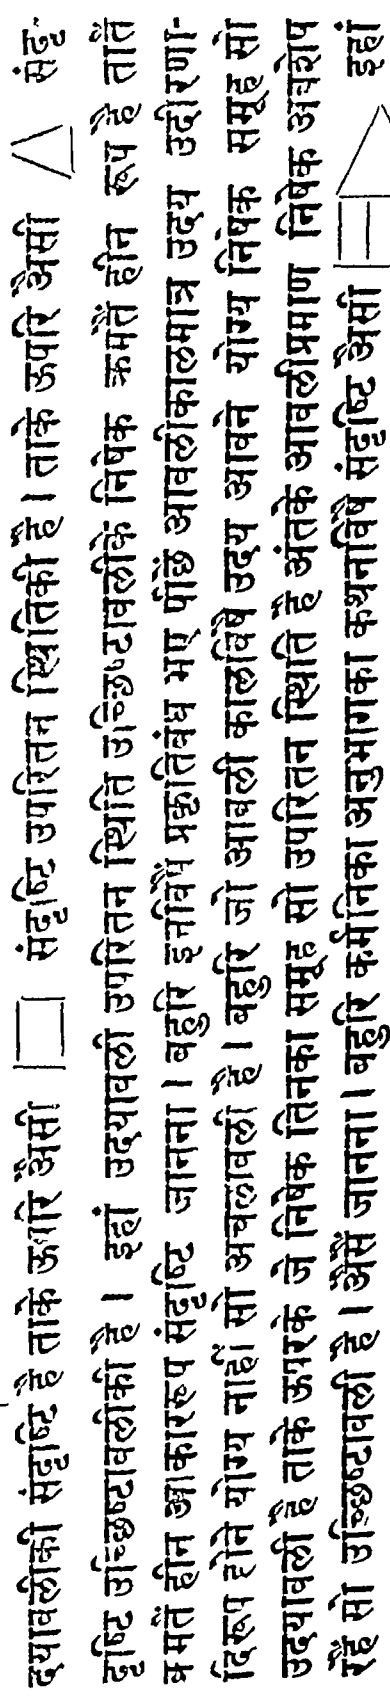 दयावलीकी संदृष्टि है ताकै ऊपरि अैसी संदृष्टि उपरितन स्थितिकी है। ताके ऊपरि अैसी संदृ-
दृष्टि उच्छिष्टावलीका है। इहां उदयावली उपरितन स्थिति उच्छिष्टावलीके निषेक क्रमतैं हीन रूप है तातैं
क्रमतैं हीन आकाररूप संदृष्टि जानना। बहुरि इनविषैं प्रकृतिबंध भए पीछैं आवलीकालमात्र उदय उदीरणा-
दिरूप होने योग्य नाहीं सो अचलावली है। बहुरि जो आवली कालविषैं उदय आवने योग्य निषेक समूह सो
उदयावली है ताके ऊपरके जे निषेक तिनका समूह सो उपरितन स्थिति है अंतके आवलीप्रमाण निषेक अवशेष
रहैं सो उच्छिष्टावली है। अैसैं जानना। बहुरि कर्मनिका अनुभागका कथनविषैं संदृष्टि अैसी इहां